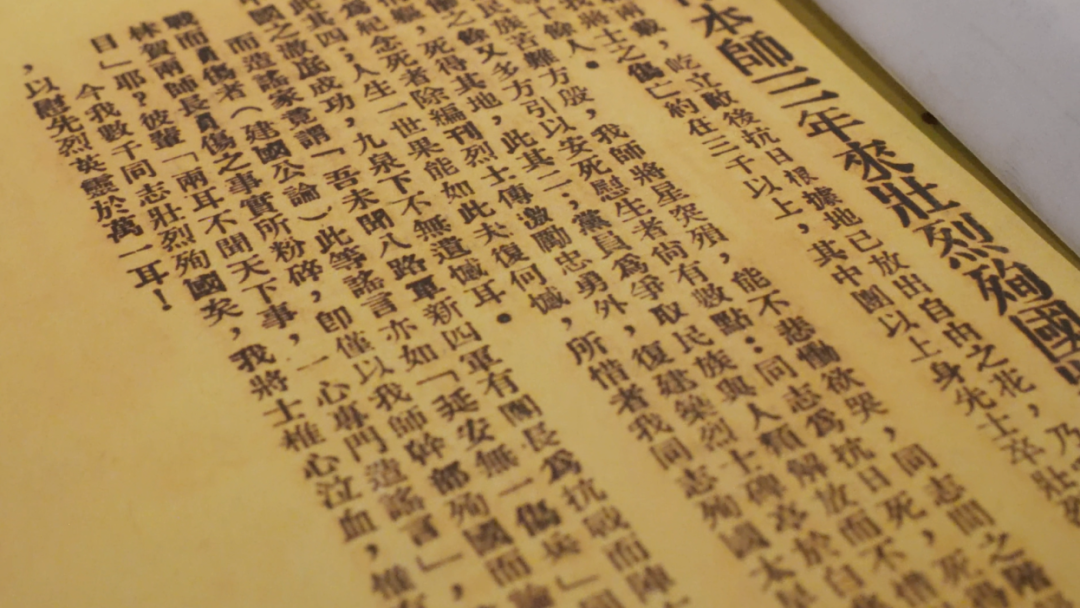 本師三年來壯烈殉國
戴,屹立敵後抗日根據地已放出自由之花,乃
將士之傷亡約在三千以上,其中團以上身先士卒壯烈
十餘人.
民族苦難方殷,我師將星突殞,能不悲慟欲哭,同志間之階
之餘又多方引以安死慰生者尚有數點:同志為抗日而死,不惜
死得其地,此其二;黨員為爭取民族與人類解放而
為紀念死者除編刊烈士傳,激勵忠勇外,復建築烈士碑亭於
此其四.人生一世果能如此夫復何憾,所惜者我同志殉國太
國之激底成功,九泉下不無遺憾耳.
而造謠家竟謂「吾未聞八路軍新四軍有團長為抗戰而陣
戰而負傷者(建國公論)此等謠言亦如「延安無一傷兵」同
林賀兩師長負傷之事實所粉碎,即僅以我師幹部殉國而
目」耶?彼輩「兩耳不聞天下事,一心專門造謠言」,
今我數千同志壯烈殉國矣,我將士椎心泣血,僅
,以慰先烈英靈於萬一耳!